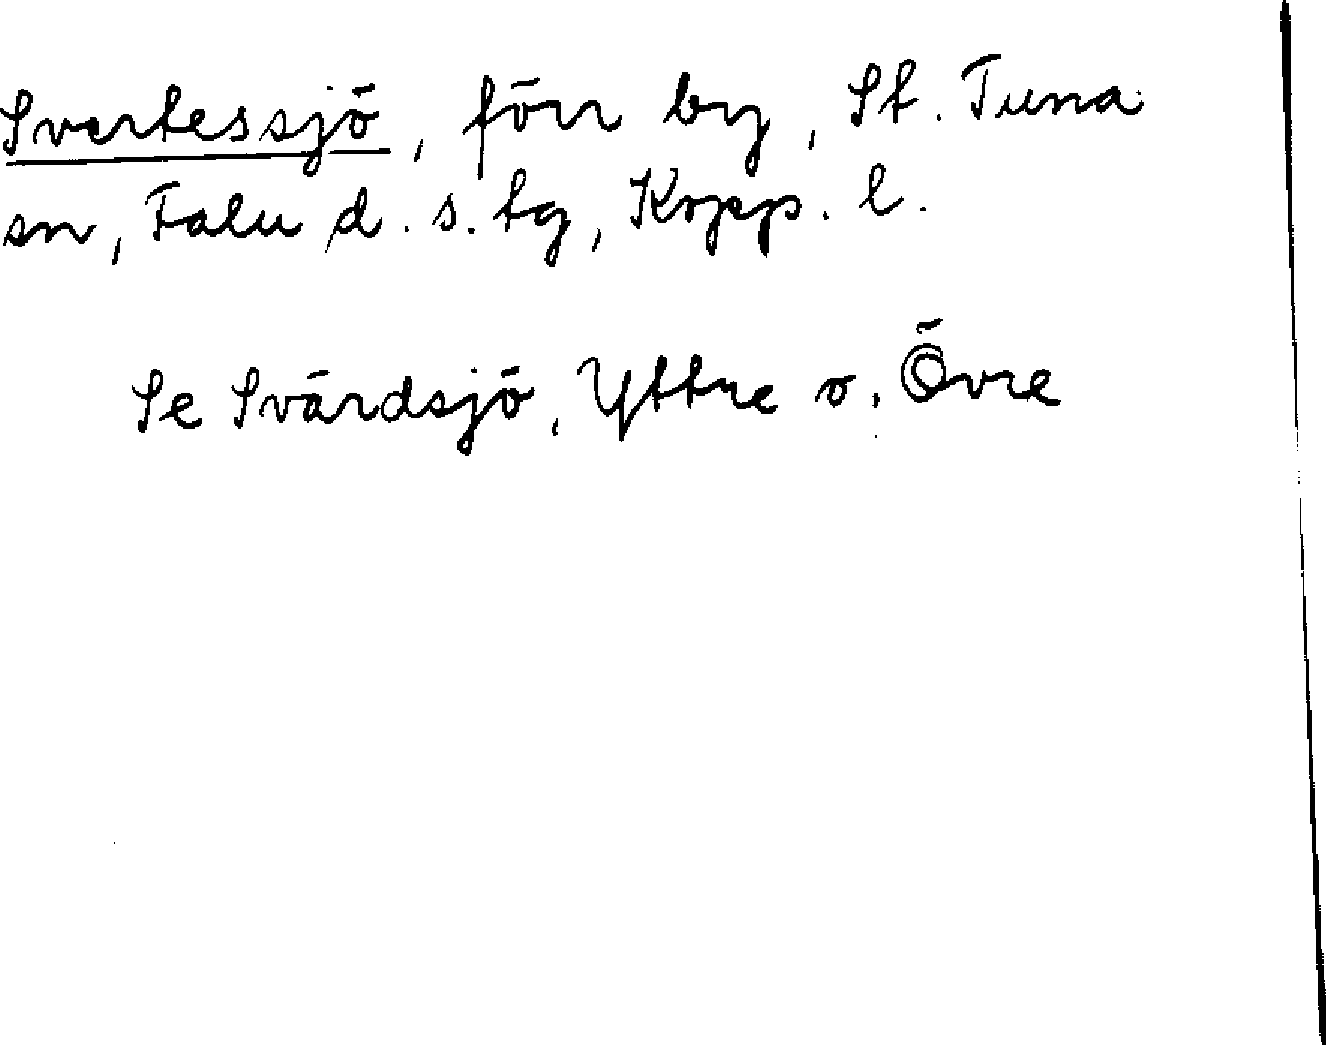 Svertessjö, förr by, St. Tuna
sn, Falu d. s. tg, Kopp. l.
Se Svärdsjö, Yttre o. Övre